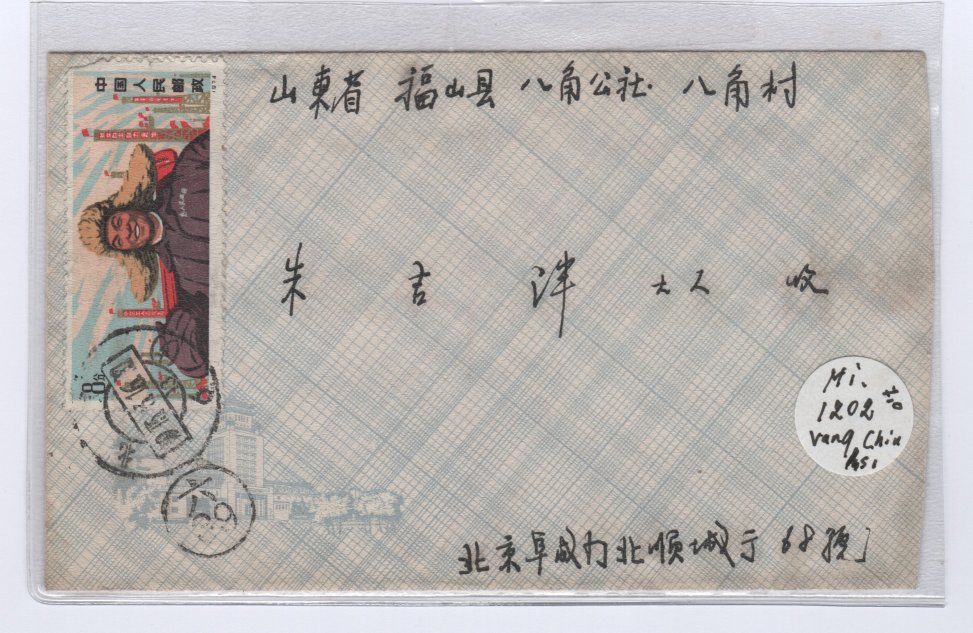 山東省 福山县 八角公社 八角村
朱吉泮 大人 收
北京阜成门北顺城街 68號
中国人民邮政
8分
北
Mi.
1202
Wang Chin
hsi